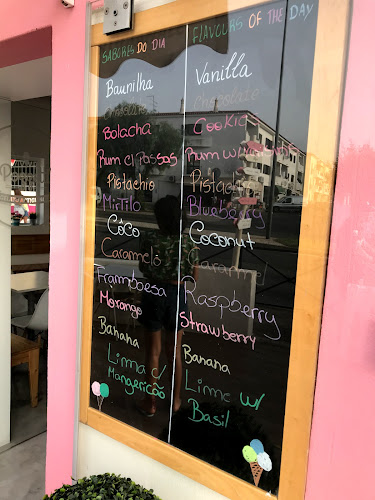 SABORES DO DIA
Baunilha
Chocolate
Bolacha
Rum c/ Passas
Pistachio
Mirtilo
Côco
Caramelo
Framboesa
Morango
Banana
Lima c/
Mangericão
FLAVOURS OF THE DAY
Vanilla
Chocolate
Cookies
Rum w/
Pistachio
Blueberry
Coconut
Caramel
Raspberry
Strawberry
Banana
Lime w/
Basil